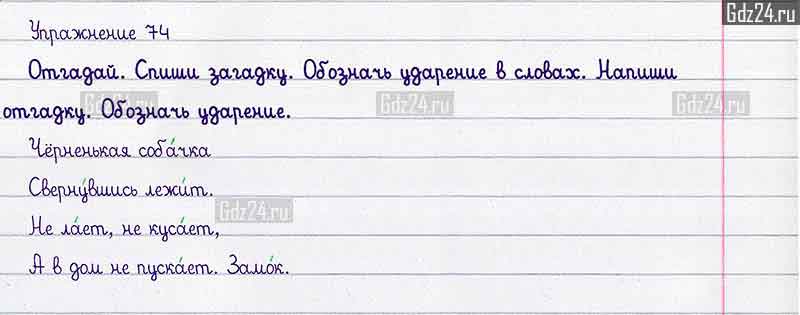 Gdz24.ru
Упражнение 74
Отгадай. Спиши загадку. Обозначь ударение в словах. Напиши
отгадку. Обозначь ударение.
Gdz24.ru Gdz24.ru Gdz24.ru
Чёрненькая соба́чка
Сверну́вшись лежи́т.
Gdz24.ru
Не ла́ет, не куса́ет,
А в дом не пуска́ет. Замо́к.